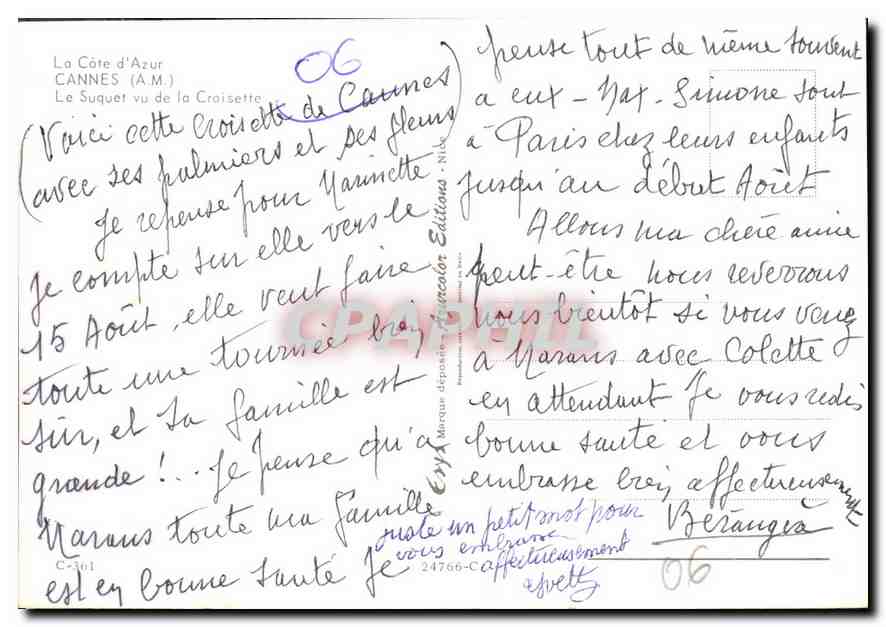 La Côte d'Azur
CANNES (A.M.)
Le Suquet vu de la Croisette
06
(Voici cette Croisette de Cannes
avec ses palmiers et ses fleurs)
Je repense pour Marinette
Je compte sur elle vers le
15 Août, elle veut faire
toute une tournée bien
sûr, et sa famille est
grande !... Je pense qu'à
Marans toute ma famille
est en bonne santé Je
C-361
24766-C
Eryx Marque déposée - Azurcolor Editions - Nice
CPAPHIL
pense tout de même souvent
a eux - Max - Simone sont
à Paris chez leurs enfants
jusqu'au début Août
Allons ma chère amie
peut-être nous reverrons
nous bientôt si vous venez
à Marans avec Colette
en attendant Je vous redis
bonne santé et vous
embrasse bien affectueusement
Bérangèa
juste un petit mot pour
vous embrasser
affectueusement
Yvett
06